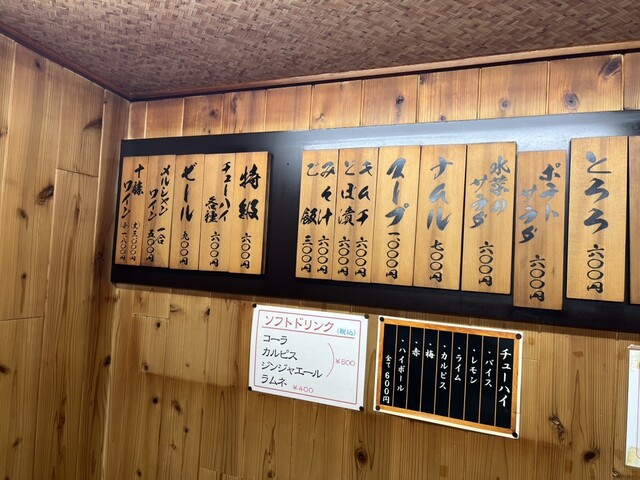 とろろ 六〇〇円
ポテトサラダ 六〇〇円
水菜のサラダ 六〇〇円
ナムル 七〇〇円
スープ 一〇〇〇円
キムチ 六〇〇円
どぼ漬 六〇〇円
みそ汁 三〇〇円
ご飯 三〇〇円
特級 六〇〇円
チューハイ各種 六〇〇円
ビール 九〇〇円
メルシャンワイン 一合 五〇〇円
十勝ワイン 大三〇〇〇円 小一八〇〇円
ソフトドリンク (税込)
コーラ
カルピス
ジンジャエール
¥500
ラムネ ¥400
チューハイ
・バイス
・レモン
・ライム
・カルピス
・梅
・赤
・ハイボール
全て600円